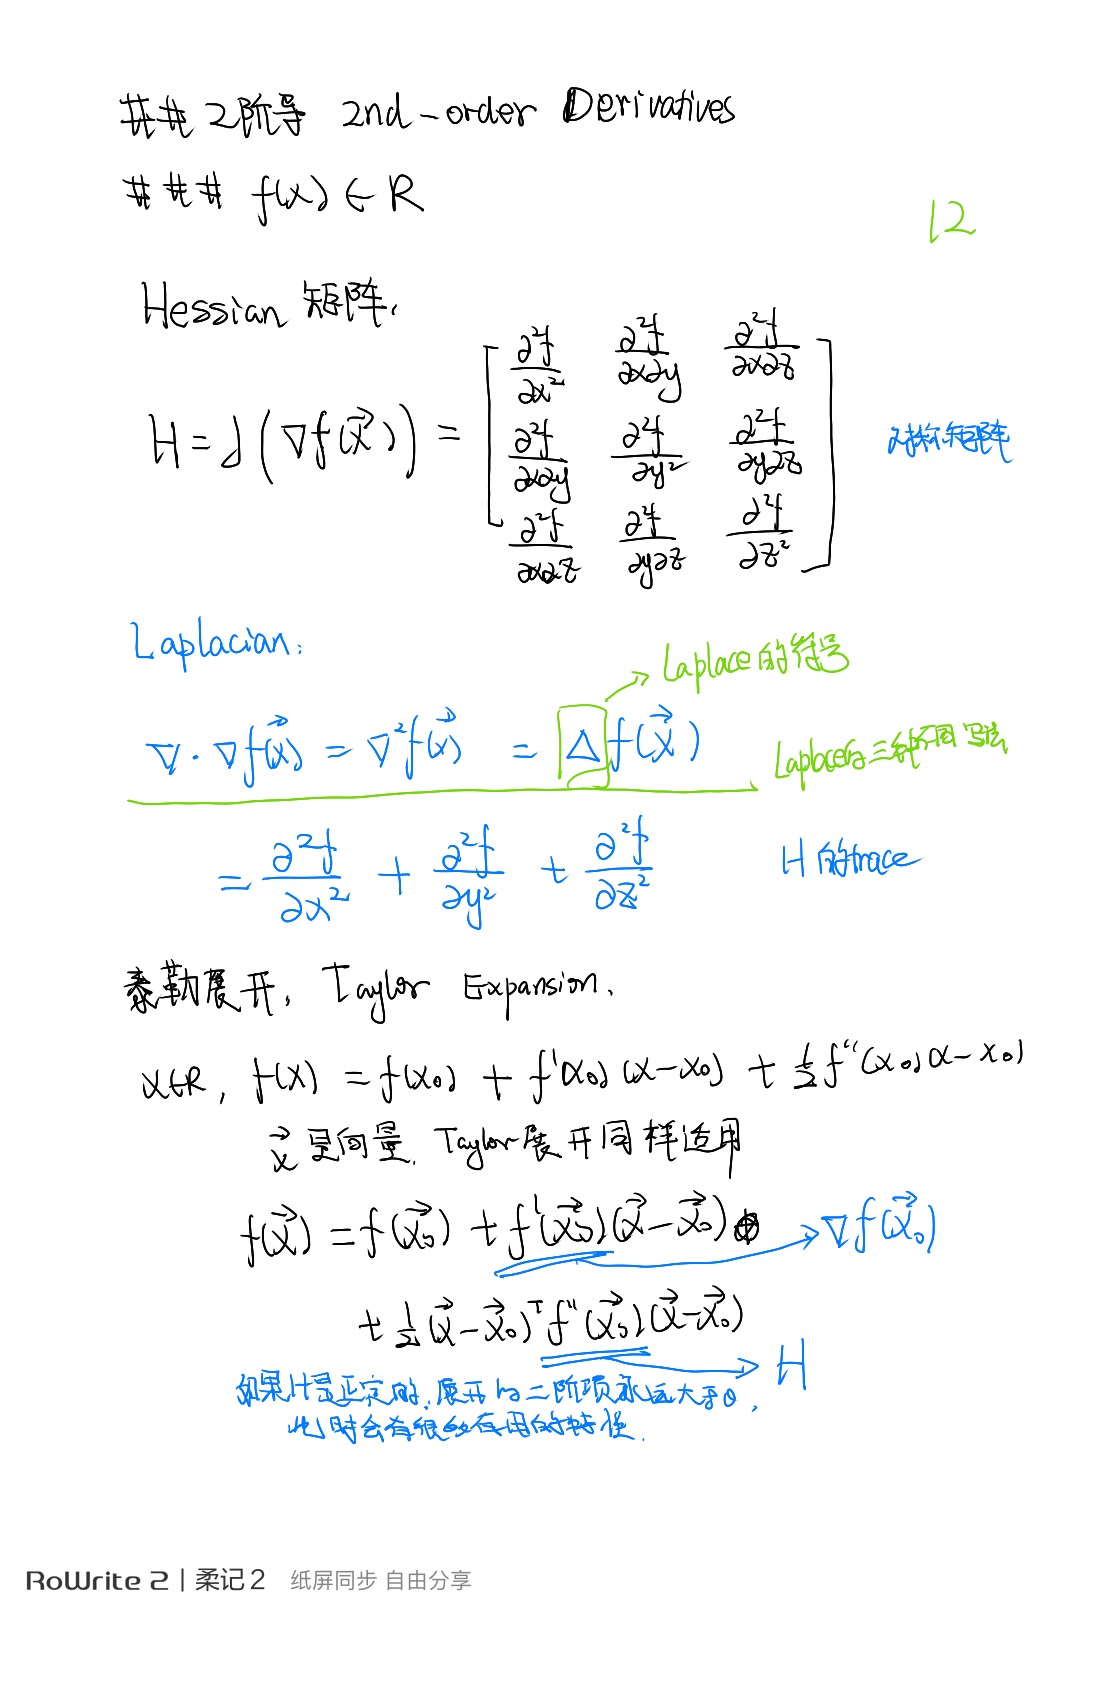 ## 2阶导 2nd-order Derivatives
### f(x) ∈ R
12
Hessian 矩阵.
H = J (∇f(x⃗)) = [ ∂²f/∂x² ∂²f/∂x∂y ∂²f/∂x∂z
∂²f/∂x∂y ∂²f/∂y² ∂²f/∂y∂z
∂²f/∂x∂z ∂²f/∂y∂z ∂²f/∂z² ]
对称矩阵
Laplacian:
→ Laplace的符号
∇·∇f(x⃗) = ∇²f(x⃗) = Δf(x⃗)
Laplace的三种不同写法
= ∂²f/∂x² + ∂²f/∂y² + ∂²f/∂z²
H的trace
泰勒展开, Taylor Expansion.
x∈R, f(x) = f(x₀) + f'(x₀)(x-x₀) + ½f''(x₀)(x-x₀)
x⃗ 是向量. Taylor展开同样适用
f(x⃗) = f(x⃗₀) + f'(x⃗₀)(x⃗-x⃗₀) → ∇f(x⃗₀)
+ ½(x⃗-x⃗₀)ᵀf''(x⃗₀)(x⃗-x⃗₀)
→ H
如果H是正定的, 展开的二阶项永远大于0,
此时会有很多有用的特性.
RoWrite 2 | 柔记2 纸屏同步 自由分享